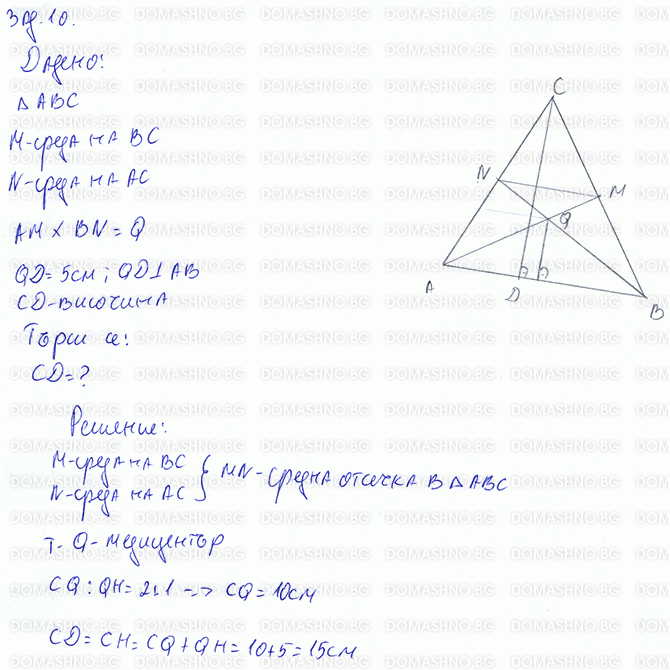 Зад.10.
Дадено:
△ABC
M-среда на BC
N-среда на AC
AM x BN = Q
QD = 5см ; QD⊥AB
CD-височина
Търси се:
CD=?
C
N
M
Q
A
D
B
Решение:
M-среда на BC
N-среда на AC } MN-средна отсечка в △ABC
т. Q-медицентър
CQ : QH = 2:1 --> CQ = 10см
CD = CH = CQ + QH = 10+5 = 15см
DOMASHNO.BG